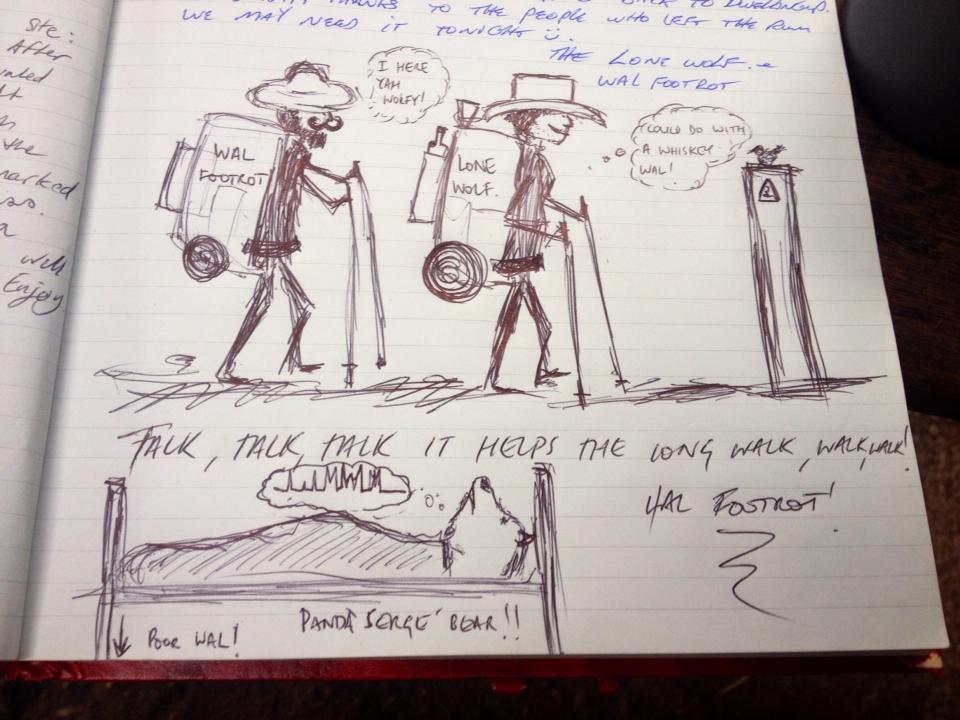 THANKS TO THE PEOPLE WHO LEFT THE RUM
WE MAY NEED IT TONIGHT
THE LONE WOLF.
WAL FOOTROT
Site:
After
the
marked
will
Enjoy
I HERE
YAH
WOLFY!
WAL
FOOTROT
LONE
WOLF.
I COULD DO WITH
A WHISKEY
WAL!
TALK, TALK, TALK IT HELPS THE LONG WALK, WALK, WALK!
WAL FOOTROT!
POOR WAL!
PANDA 'SERGE' BEAR!!